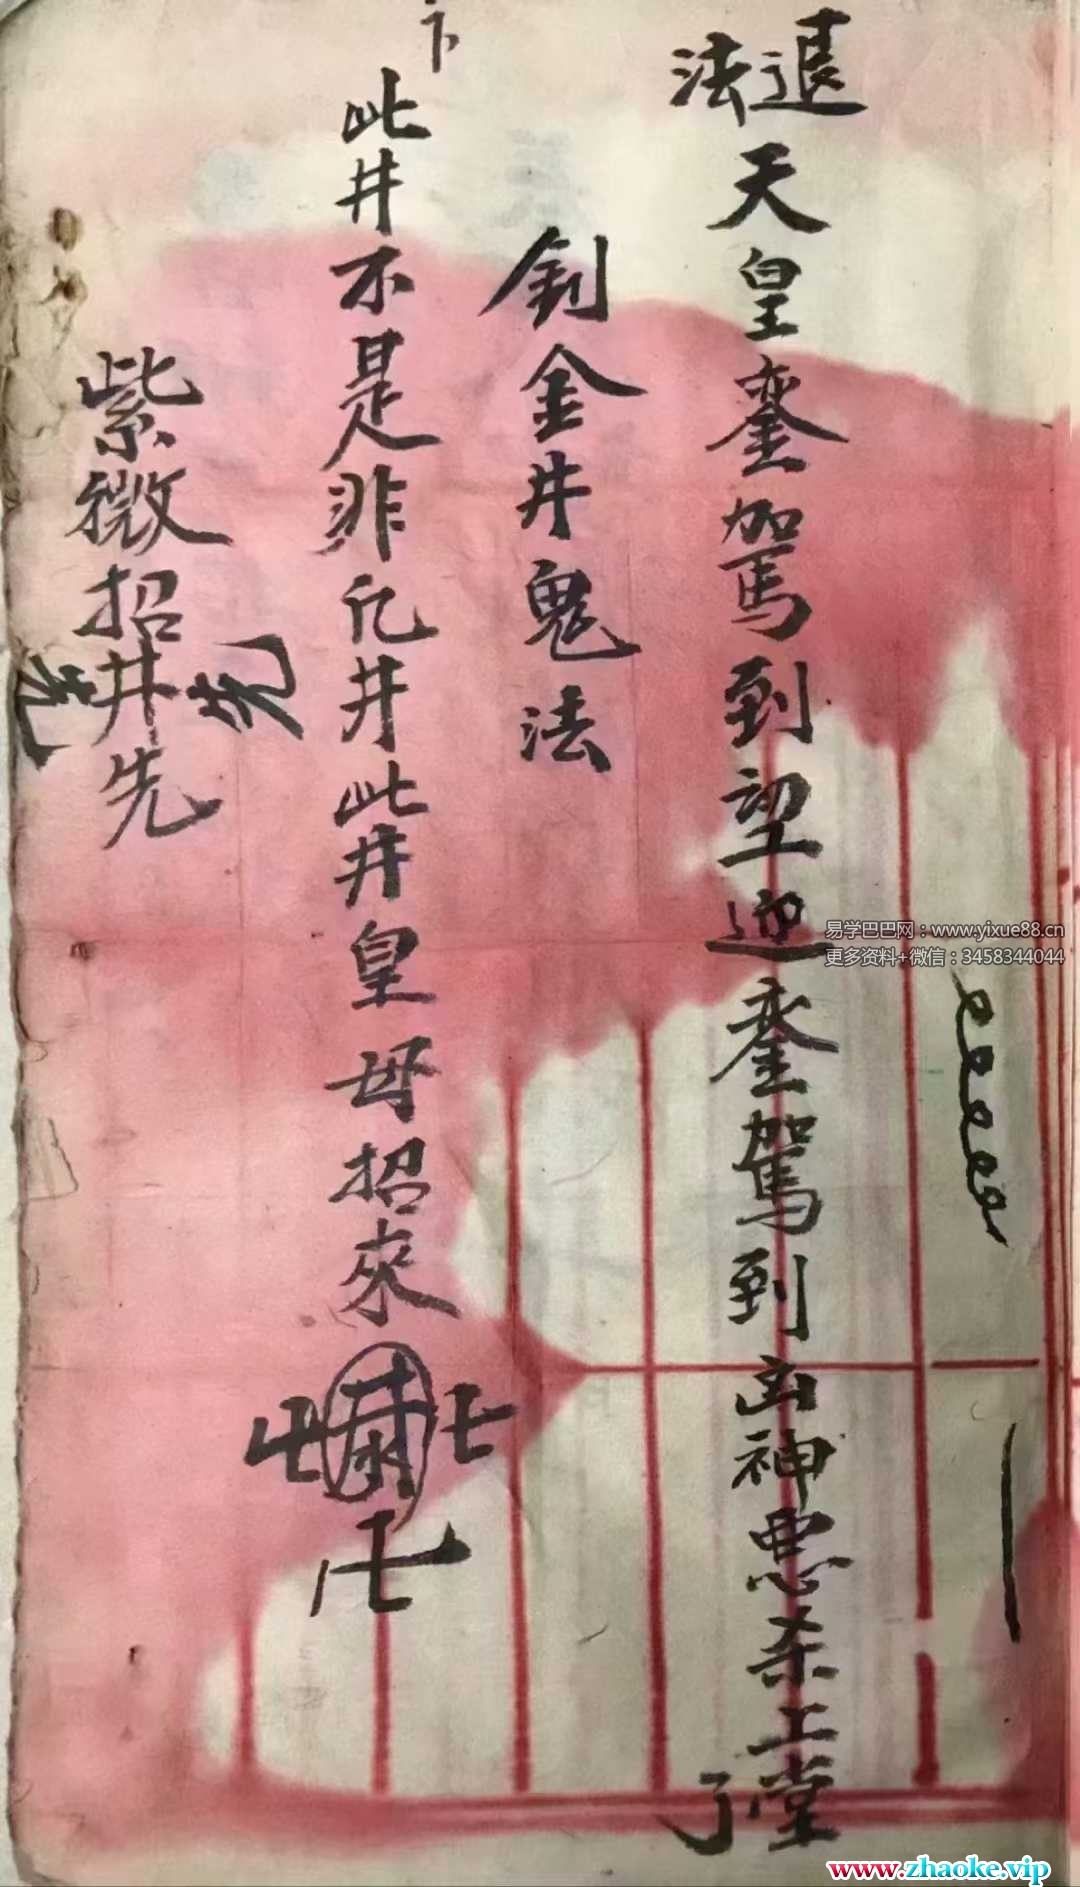 退法
天皇銮驾到望迎銮驾到凶神恶杀上堂了
釗金井鬼法
卞
此井不是非凡井此井皇母招來
紫微招井先
易学巴巴网：www.yixue88.cn
更多资料+微信：3458344044
www.zhaoke.vip